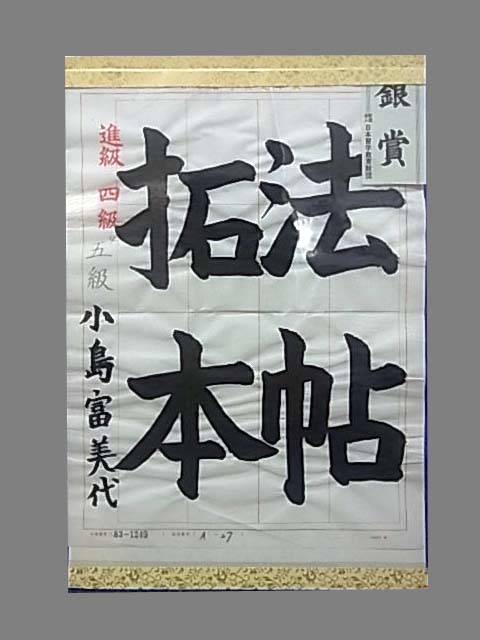 銀賞
日本習字教育財団
法帖
拓本
進級 四級
五級
小島富美代
83-1249
A -27